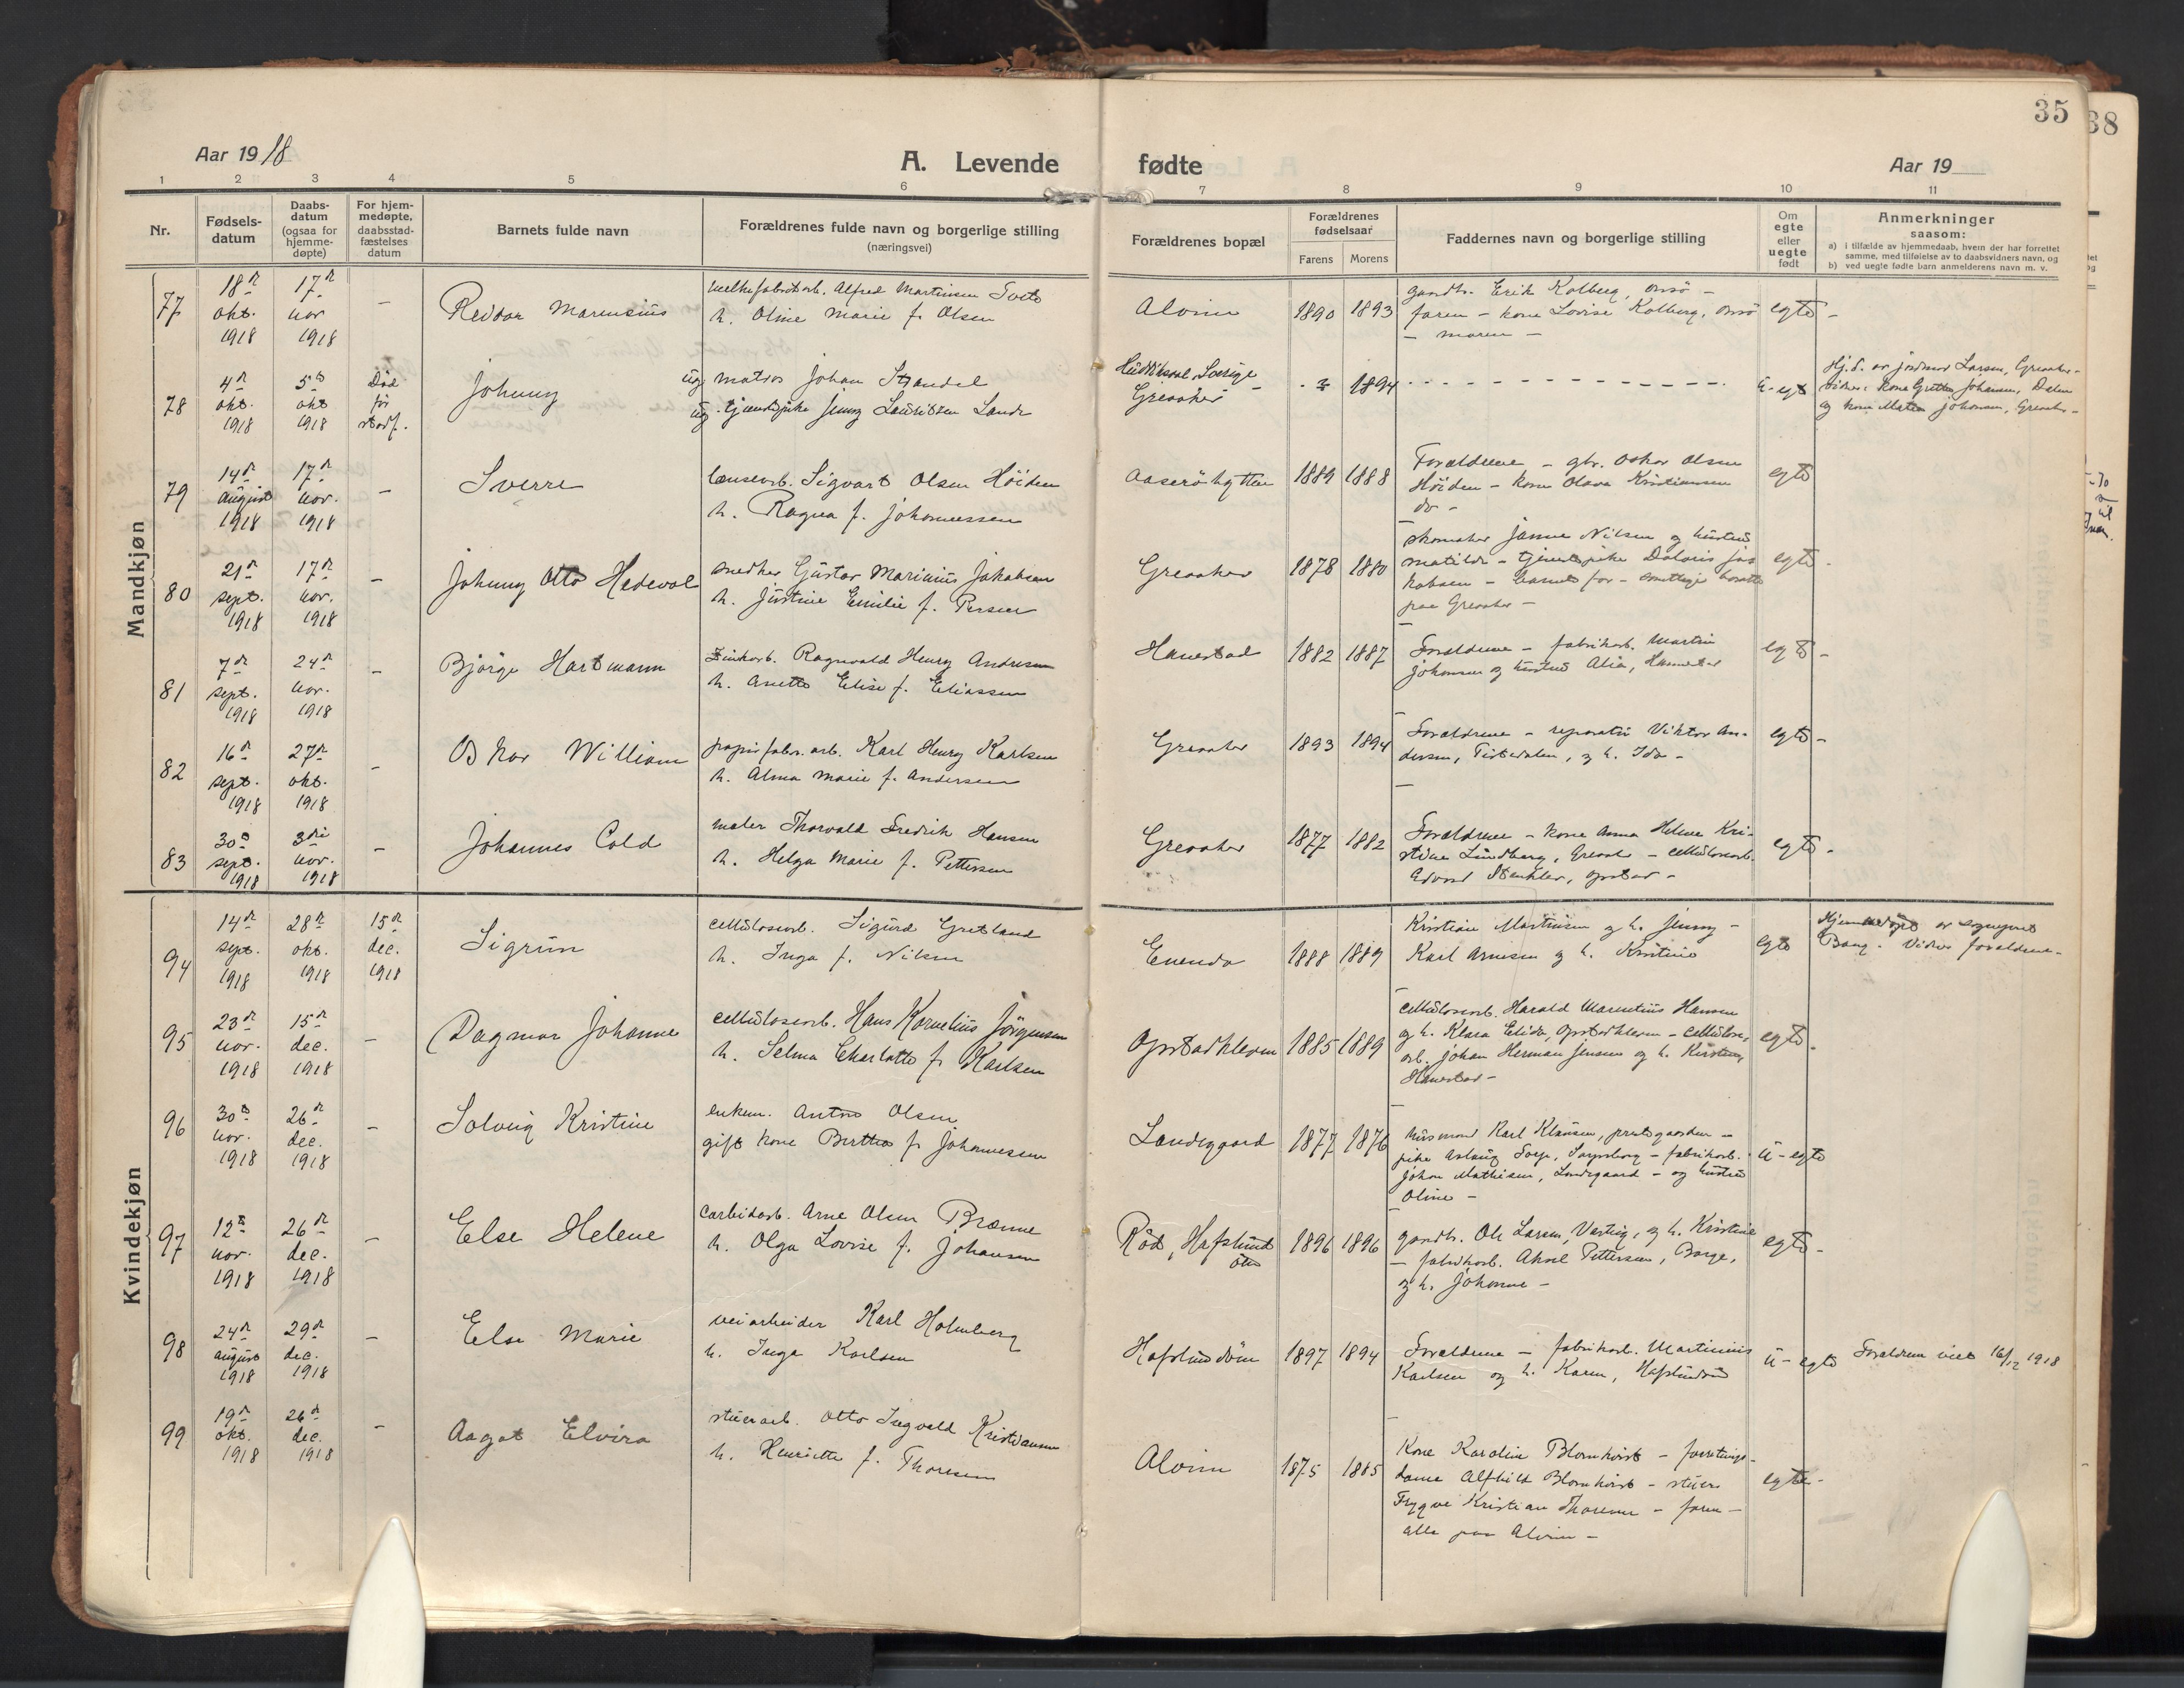 35
38
Aar 1918
A. Levende fødte
Aar 19
1 2 3 4 5 6 7 8 9 10 11
Nr.
Fødsels-
datum
Daabs-
datum
(ogsaa for
hjemme-
døpte)
For hjem-
medøpte,
daabsstad-
fæstelses
datum
Barnets fulde navn
Forældrenes fulde navn og borgerlige stilling
(næringsvei)
Forældrenes bopæl
Forældrenes
fødselsaar
Farens Morens
Faddernes navn og borgerlige stilling
Om
egte
eller
uegte
født
Anmerkninger
saasom:
a) i tilfælde av hjemmedaab, hvem der har forrettet
samme, med tilføielse av to daabsvidners navn, og
b) ved uegte fødte barn anmelderens navn m. v.
Mandkjøn
77
18de
okt.
1918
17de
nov
1918
-
Reidar Marensius
melkefabrikarb. Alfred Martinsen Tveter
h. Oline Marie f. Olsen
Alvim
1890 1893
gaardbr. Erik Kolberg, Onsø -
faren - kone Lovise Kolberg, Onsø
- moren -
egte -
78
4de
okt.
1918
5te
okt
1918
Død
før
stadf.
Johnny
ug. matros Johan Strandel
ug. tjenestepike Jenny Lauritzen Lande
Hudiksval, Sverige
Greaaker -
- ? 1894
u-egte
Hj.d. av jordmor Larsen, Greaaker -
vidner: kone Grethe Johansen, Dalen
og kone Mathea Johansen, Greaaker -
79
14de
august
1918
17de
nov.
1918
-
Sverre
lænsearb. Sigvart Olsen Höiden
h. Ragna f. Johannessen
Aaseröhytten
1889 1888
Forældrene - gbr. Oskar Olsen
Höiden - kone Olava Kristiansen
do -
egte
80
21de
sept.
1918
17de
nov.
1918
-
Johnny Otto Hedevol
snedker Gustav Marinius Jakobsen
h. Justine Emilie f. Persen
Greaaker
1878 1880
skomaker Janne Nilsen og hustru
Matilde - tjenestepike Doloris Jakobsen - barnets far - samtlige bosatte
paa Greaaker -
egte -
81
7de
sept.
1918
24de
nov.
1918
-
Bjørge Hartmann
Zinkarb. Ragnvald Henry Andersen
h. Anette Elise f. Eliassen
Hanestad
1882 1887
Forældrene - fabrikarb. Martin
Johansen og hustru Alia, Hanestad
egte -
82
16de
sept.
1918
27de
okt.
1918
-
Oskar William
papirfabr. arb. Karl Henry Karlsen
h. Alma Marie f. Andersen
Greaaker
1893 1894
Forældrene - reparatør Viktor An-
dersen, Tistedalen, og h. Ida -
egte -
83
30te
sept.
1918
3die
nov.
1918
-
Johannes Cold
maler Thorvald Fredrik Hansen
h. Helga Marie f. Pettersen
Greaaker
1877 1882
Forældrene - kone Anna Helene Kri-
stine Lundberg, Greaaker - cellulosearb.
Edvard Stenkler, Opstad -
egte -
Kvindekjøn
94
14de
sept.
1918
28de
okt.
1918
15de
dec.
1918
Sigrun
cellulosearb. Sigurd Gretland
h. Inga f. Nilsen
Enenda
1888 1889
Kristian Martinsen og h. Jenny -
Karl Arnesen og h. Kristine
egte
Hjemmedøpt av sogneprest
Bang. Vidner forældrene -
95
23de
nov.
1918
15de
dec.
1918
-
Dagmar Johanne
cellulosearb. Hans Kornelius Jörgensen
h. Selma Charlotte f. Karlsen
Opstadkleven
1885 1889
cellulosearb. Harald Marentius Hansen
og h. Klara Elida, Opstadkleven - cellulose-
arb. Johan Herman Jensen og h. Kirstine,
Hanestad -
egte -
96
30te
nov.
1918
26de
dec.
1918
-
Solveig Kristine
enkem. Anton Olsen
gift kone Berthea f. Johannessen
Landsgaard
1877 1876
husmand Karl Klausen, prestegaarden -
pike Aslaug Torp, Sarpsborg - fabrikarb.
Johan Mathisen, Landsgaard - og hustru
Oline -
u-egte
97
12te
nov.
1918
26de
dec.
1918
-
Else Helene
Carbidarb. Arne Olsen Brænne
h. Olga Lovise f. Johansen
Röd, Hafslund
1896 1896
gaardbr. Ole Larsen, Vestvig, og h. Kristine
- fabrikarb. Aksel Pettersen, Borge,
og h. Johanne -
egte -
98
24de
august
1918
29de
dec.
1918
-
Else Marie
veiarbeider Karl Holmberg
h. Inga Karlsen
Hafslundsöen
1897 1894
Forældrene - fabrikarb. Martinius
Karlsen og h. Karen, Hafslundsöen
u-egte
Forældrene viet 16/12 1918
99
19de
okt.
1918
26de
dec.
1918
-
Aagot Elvira
stuerarb. Otto Ingvald Kristiansen
h. Henriette f. Thoresen
Alvim
1875 1885
Kone Karoline Blomkvist - forretnings-
dame Alfhild Blomkvist - stuer
Trygve Kristian Thoresen - faren -
alle paa Alvim -
egte -